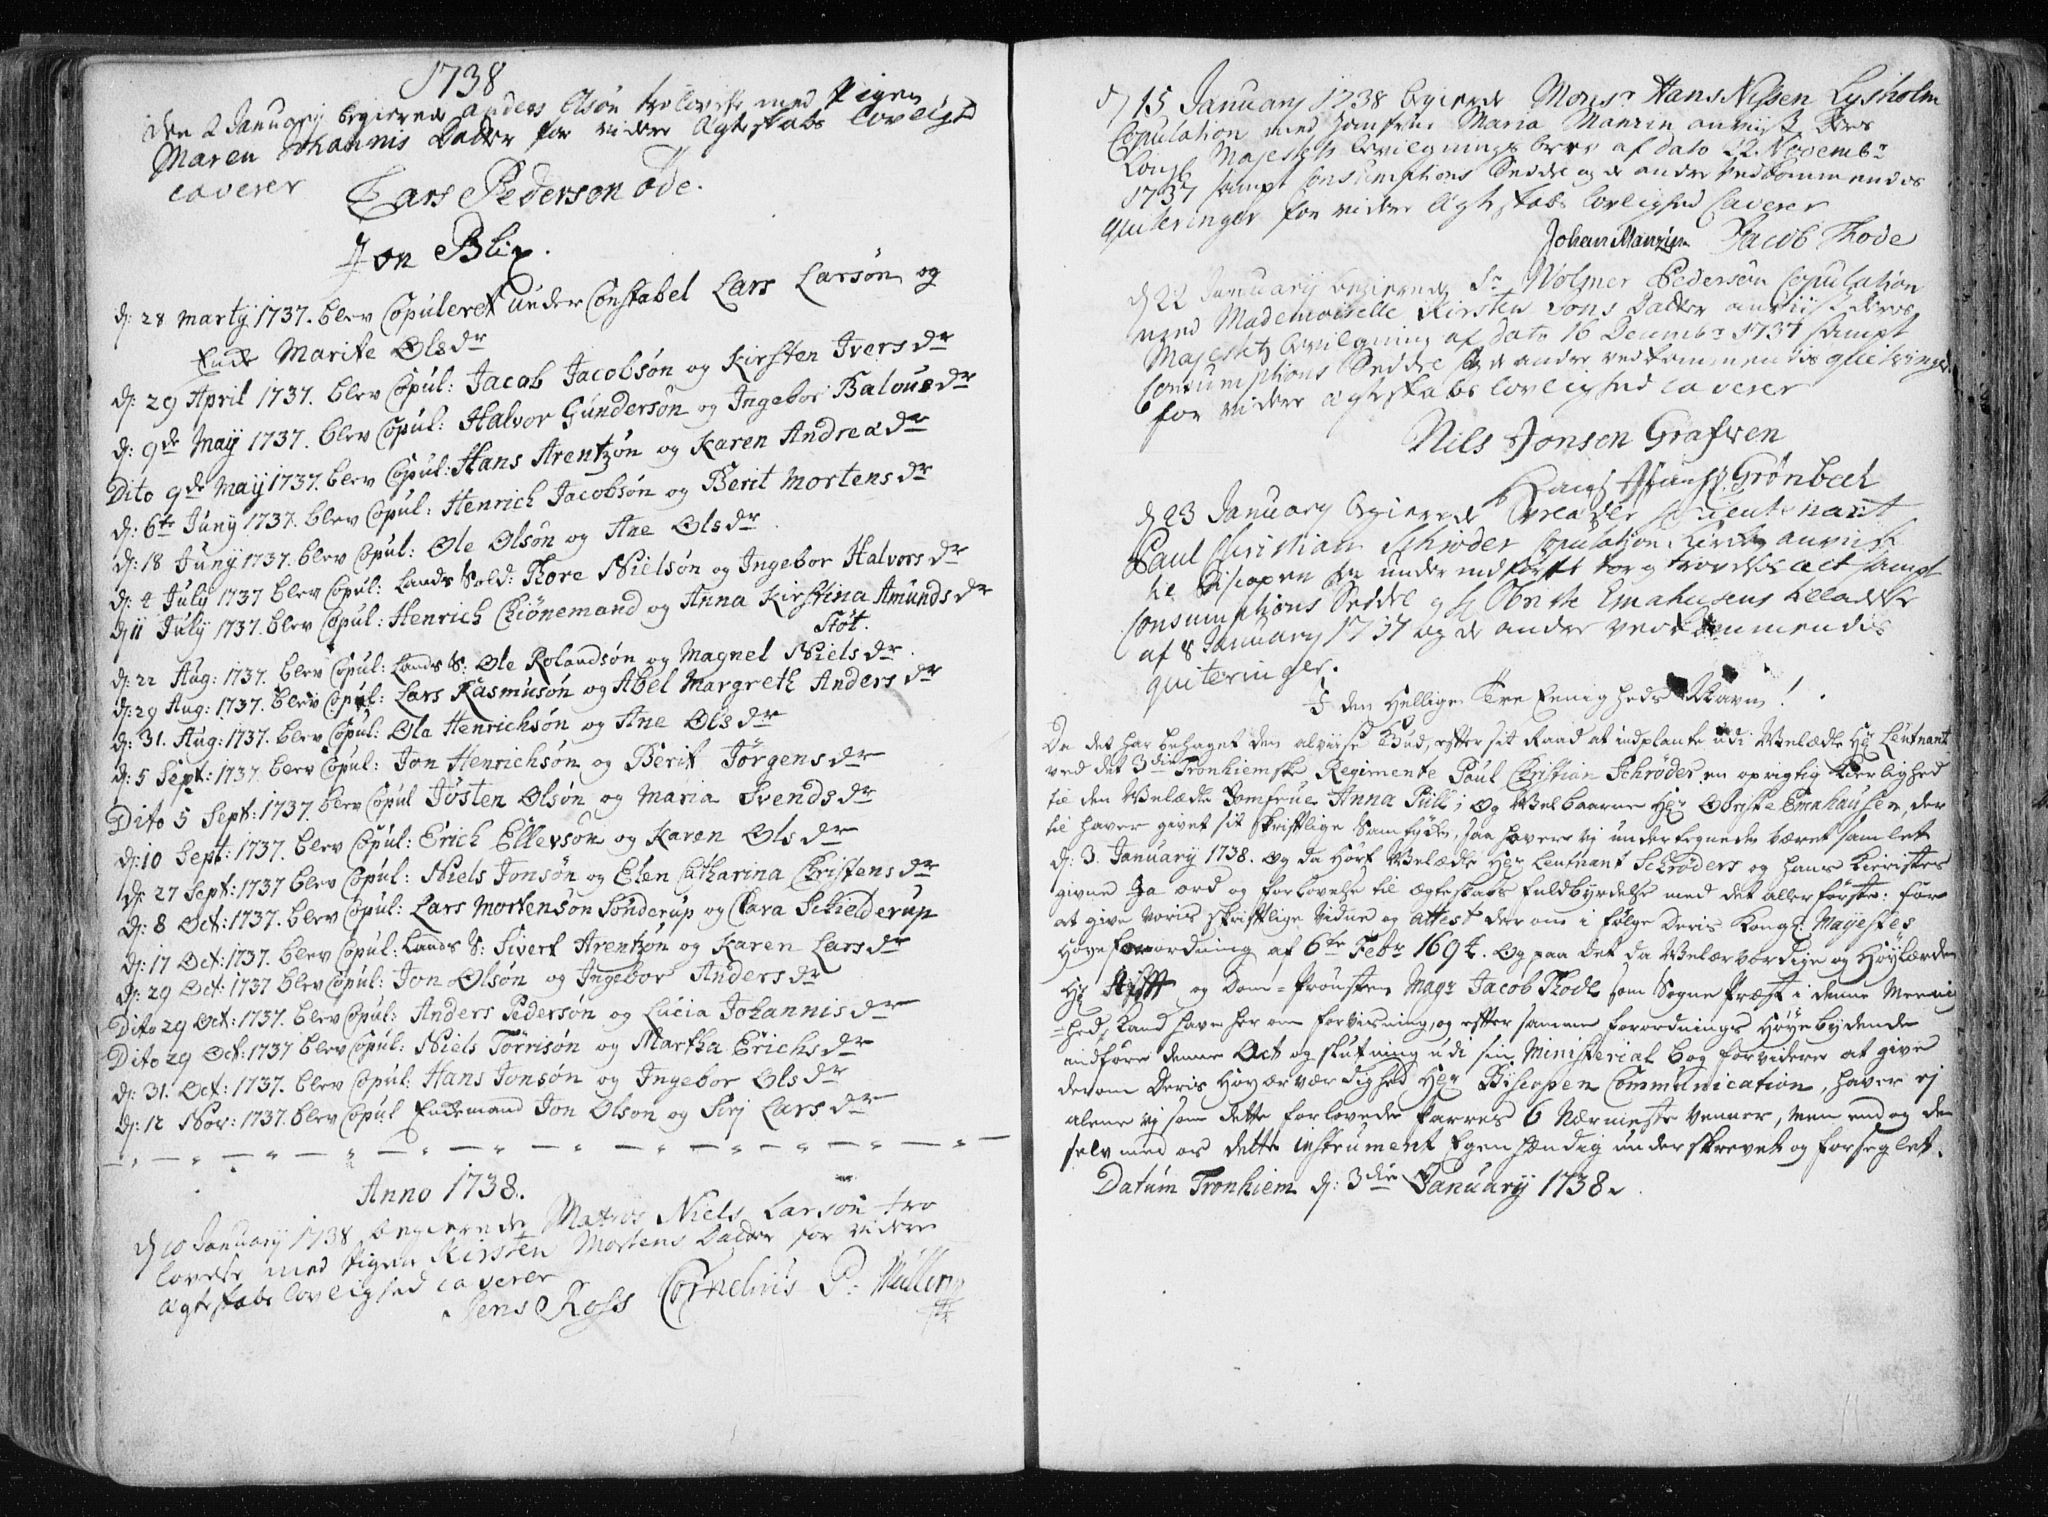 1738
den 2 January begierede Anders Olsøn trolovelse med Pigen
Maren Johannis Datter for videre Ægteskabs lovligh
caverer
Lars Pederson øde.
Jon Blix.
d: 28 Marty 1737. blev Copuleret under Constabel Lars Larsøn og
Enke Marite Olsdr
d: 29 April 1737. blev Copul: Jacob Jacobsøn og Kirsten Iversdr
d: 9de May 1737. blev Copul: Halvor Gundersøn og Ingebor Balousdr
Dito 9de May 1737. blev Copul: Hans Arentzøn og Karen Andreædr
d: 6te Juny 1737. blev Copul: Henrich Jacobsøn og Berit Mortensdr
d: 18 Juny 1737. blev Copul: Ole Olsøn og Ane Olsdr
d: 4 July 1737 blev Copul: Lands Sold: Tore Nielsøn og Ingebor Halvorsdr
d: 11 July 1737. blev Copul: Henrich Chiönemand og Anna Kirstina Amundsdr
Støt.
d: 22 Aug: 1737. blev Copul: Lands S: Ole Rolandsøn og Magnel Nielsdr.
d: 29 Aug: 1737. blev Copul: Lars Rasmusøn og Abel Margreth Andersdr
d: 31. Aug: 1737. blev Copul: Ola Henrichsøn og Ane Olsdr
d: 5 Sept: 1737. blev Copul: Jon Henrichsøn og Berit Jørgensdr
Dito 5 Sept: 1737. blev Copul Jösten Olsøn og Maria Svendsdr
d: 10 Sept: 1737. blev Copul: Erich Ellevsøn og Karen Olsdr
d: 27 Sept: 1737 blev Copul: Niels Jonsøn og Elen Catharina Christensdr
d: 8 Oct: 1737. blev Copul: Lars Mortensøn Sønderup og Clara Schielderup
d: 17 Oct: 1737. blev Copul: Lands S: Sivert Arentzøn og Karen Larsdr
d: 29 Oct: 1737 blev Copul: Jon Olsøn og Ingebor Andersdr
Dito 29 Oct: 1737. blev Copul: Anders Pedersøn og Lucia Johannisdr
Dito 29 Oct: 1737 blev Copul: Niels Törrisøn og Martha Erichsdr
d: 31. Oct: 1737. blev Copul: Hans Jonsøn og Ingebor Olsdr
d: 12 Nov: 1737. blev Copul Enkemand Jon Olson og Sirj Larsdr
Anno 1738.
d 10 January 1738 begierede Matros Niels Larsøn tro
lovelse med Pigen Kirsten Mortens Datter for videre
ægteskabs lovlighed caverer
Jens Ross Cornelius P: Müller
d 15 January 1738 begierede Monsr Hans Nissen Lysholm
Copulation med Jomfrue Maria Manzin anviist deres
Kongl Majestets bevilgnings brev af dato 22. Novembr
1737 sampt Consumptions Seddel og de andre vedkommendis
quiteringer for videre Ægteskabs lovlighed Caverer
Johan Manzin Jacob Thode
d 22 January begierede Sr Wolmer Pedersøn Copulation
med Mademoiselle Kirsten Jons Datter anviist deres
Majestetz bevilgning af dato 16 Decembr 1737 sampt
Consumptions Seddel og de andre vedkommendis quiteringer
for videre ægteskabs lovlighed caverer
Nils Jonsen Grafven
Grønbech
d 23 January begierede Velædle Hr Lieutenant
Paul Christian Schrøder Copulation
til Biscopen samt
Consumptions Seddel og Hr Obriste Emahusens tilladelse
af 8 January 1737 og de andre vedkommendis
quiteringer.
I den Hellige Tre Eenigheds Navn!
Da det har behaget den alviise Gud, efter sit Raad at indplante udi Velædle Hr Leutnant
ved det 3die Tronhiemske Regimente Poul Christian Schrøder en oprigtig Kierlighed
til den Velædle Jomfrue Anna Püll; og Velbaarne Hr Obriste Emahausen, der
til haver givet sit skriftlige Samtycke, saa haver vj undertegnede været samlet
d: 3. January 1738. og da hørt Velædle Hr Leutnant Schrøders og hans Kierestes
givne Ja ord og forlovelse til ægteskabs fuldbyrdelse med det allerförste: for
at give voris skriftlige vidne og attest der om i følge Deris Kongl: Mayestes
Høye forordning af 6te Febr 1694. og paa det da Velærværdige og Höylærde
Hr Stifft og Dom-Prousten Magr Jacob Thode som Sogne Præst i denne Meenig
-hed, kand have her om forvisning, og efter samme forordnings Høye bydende
andføre denne Act og slutning udi sin Ministerial bog forvidere at give
derom Deris Høyærværdighed Hr Biscopen Communication, haver ej
alene vj som dette forlovede Parres 6 Nærmeste venner, men end og de
selv med os dette instrument Egenhændig underskrevet og forseglet.
Datum Tronhiem d: 3die January 1738.